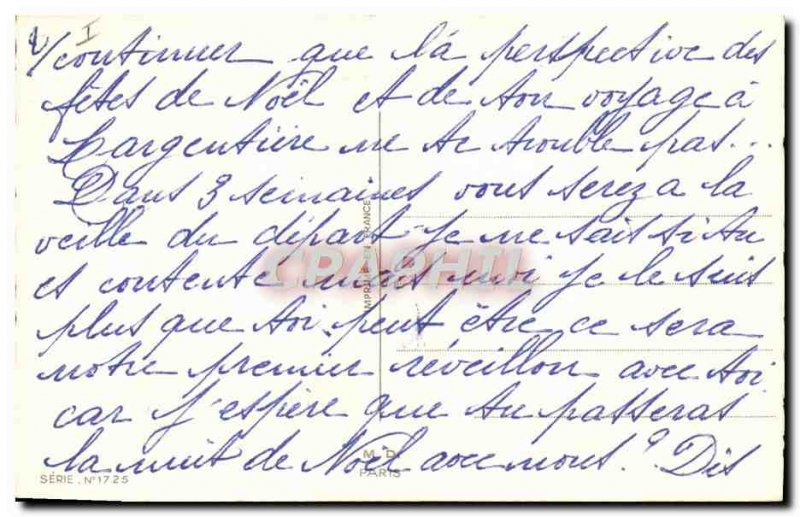 I
continuer que la perspective des
fêtes de Noël et de ton voyage à
Largentière ne te trouble pas...
Dans 3 semaines vous serez à la
veille du départ je ne sais si tu
es contente mais moi je le suis
plus que toi. peut être ce sera
notre premier réveillon avec toi
car j'espère que tu passeras
la nuit de Noël avec nous? Dis
IMPRIMÉ EN FRANCE
CPAPHIL
M.D.
PARIS
SÉRIE. N° 1725